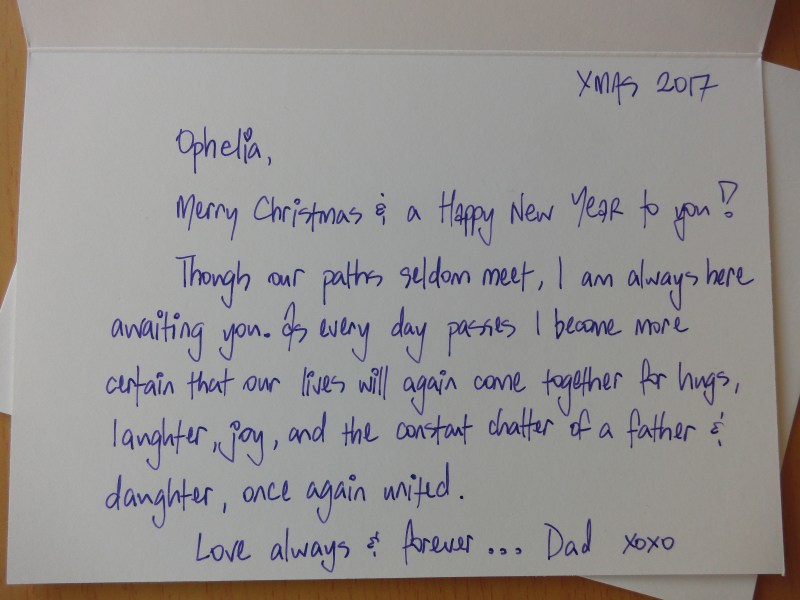 XMAS 2017
Ophelia,
Merry Christmas & a Happy New YEAR to you!
Though our paths seldom meet, I am always here
awaiting you. As every day passes I become more
certain that our lives will again come together for hugs,
laughter, joy, and the constant chatter of a father &
daughter, once again united.
Love always & forever... Dad xoxo